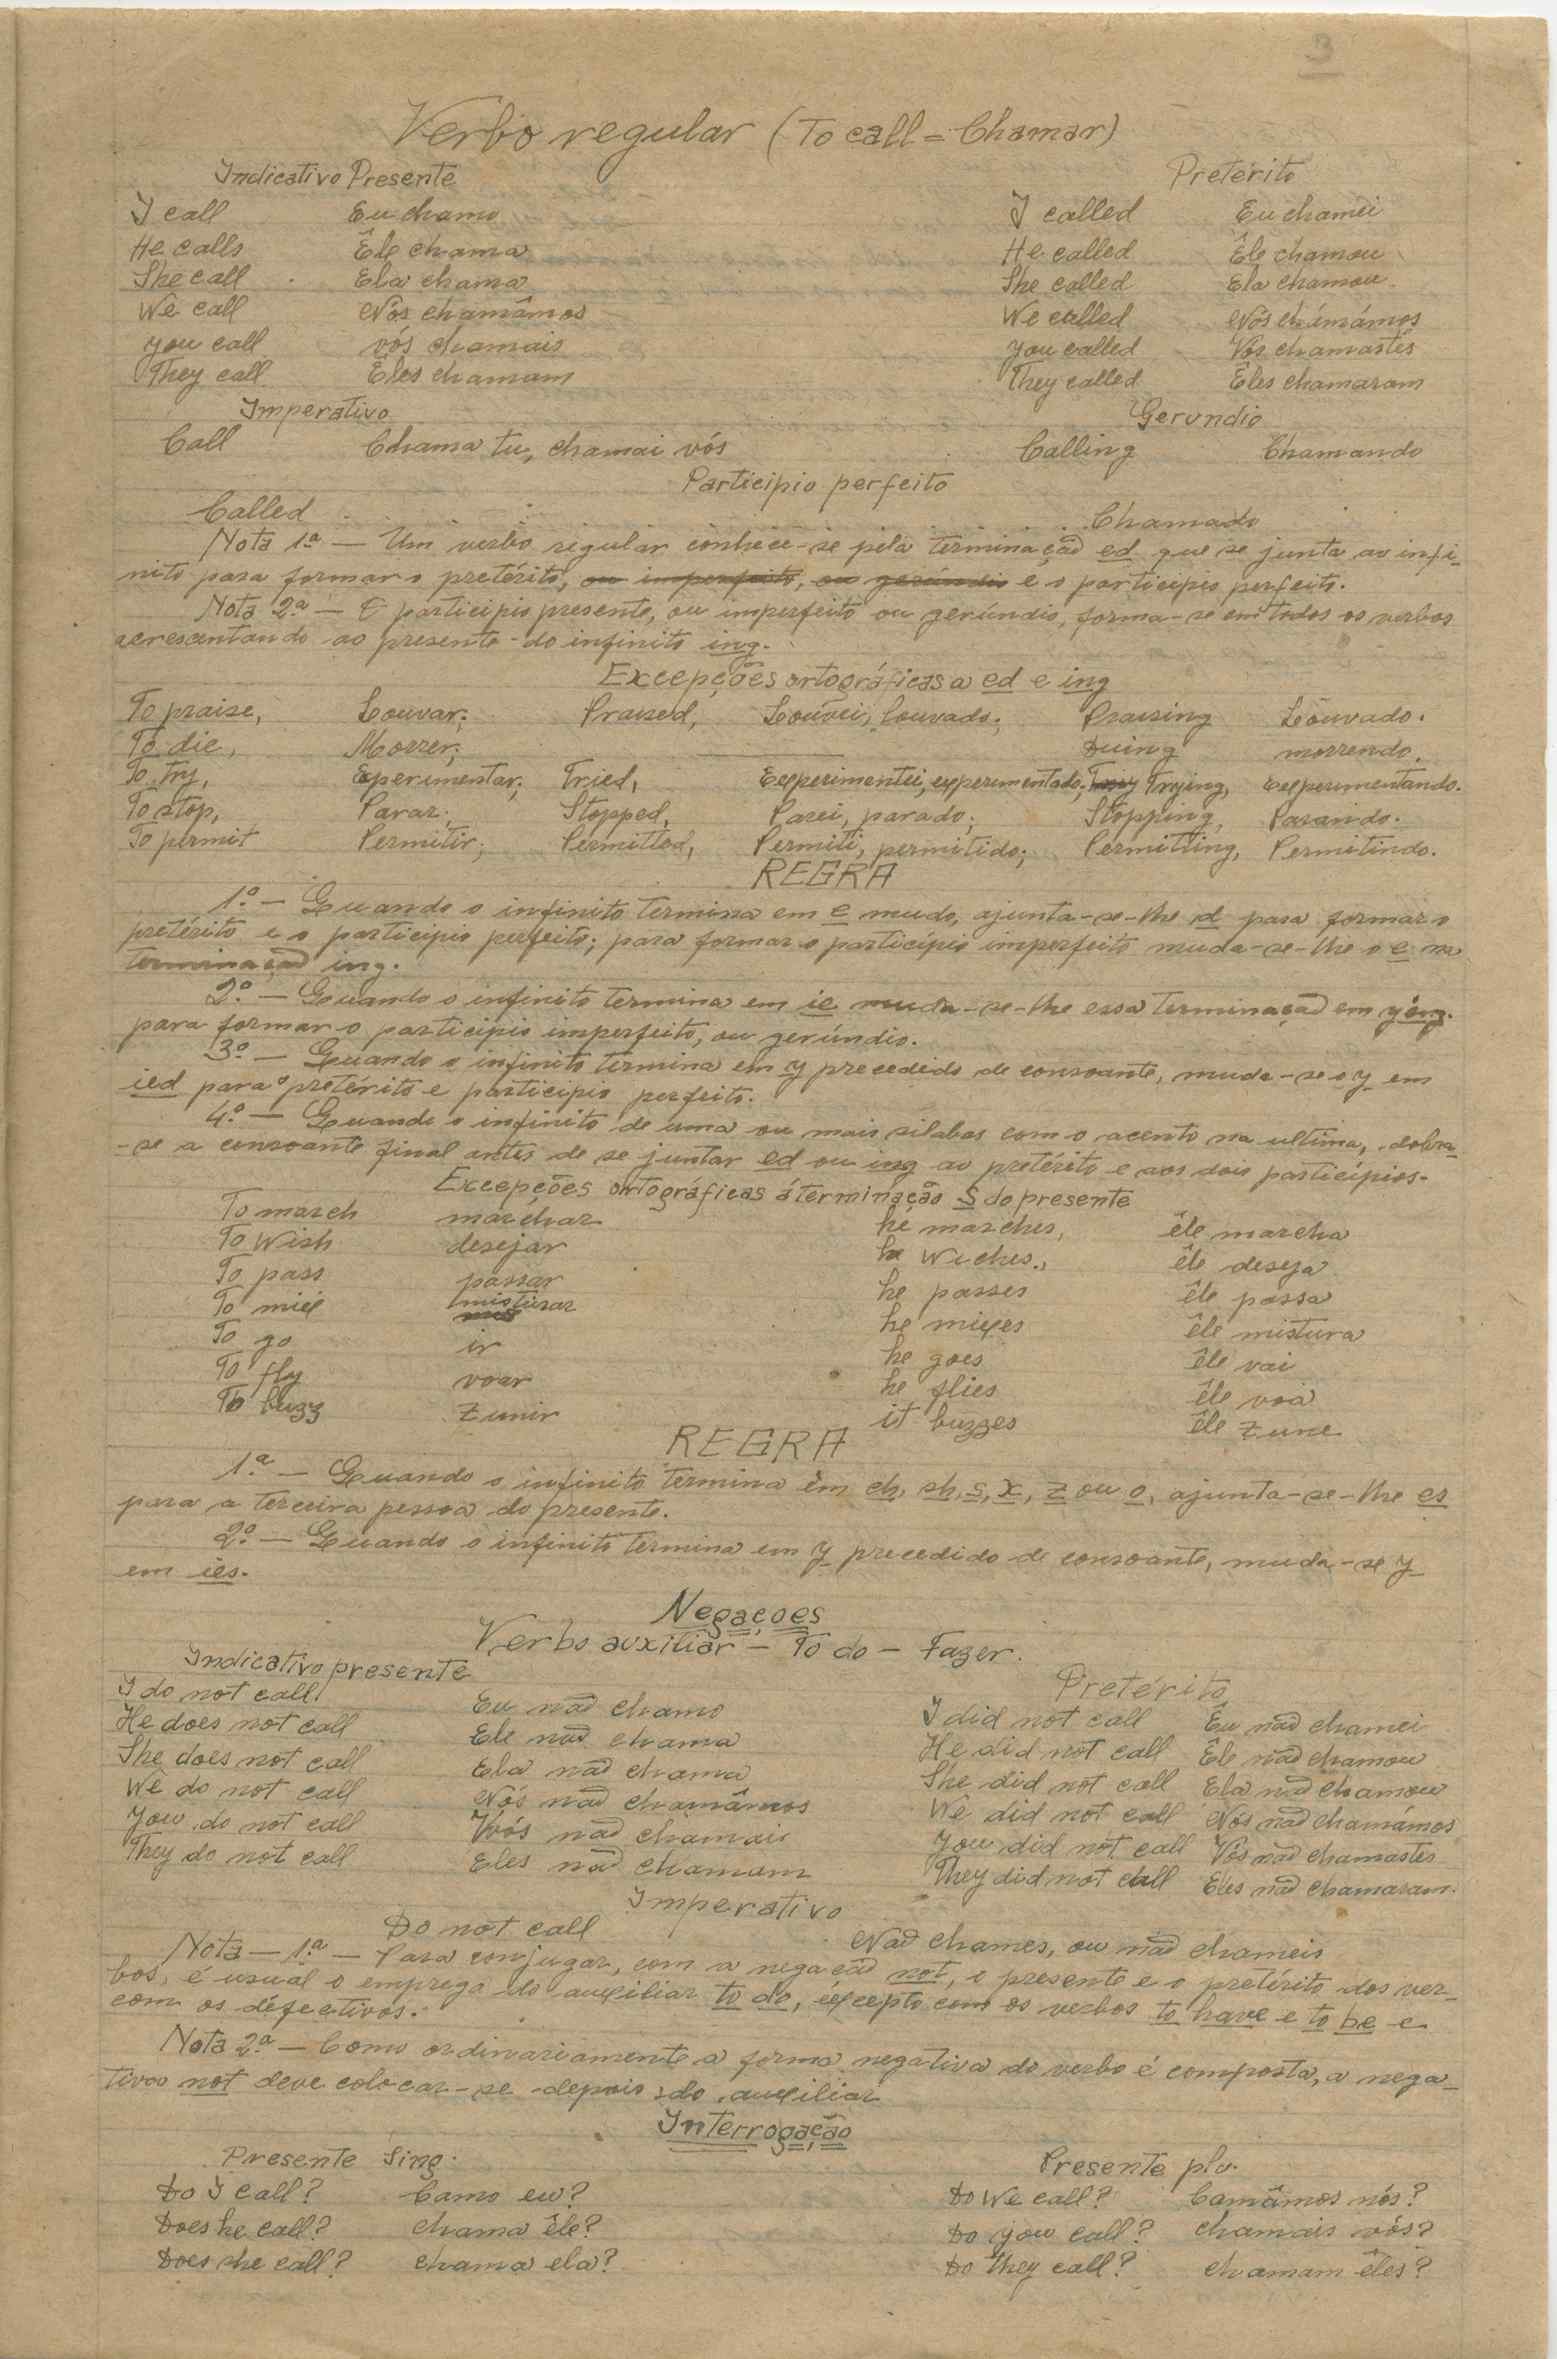 3
Verbo regular (To call = Chamar)
Indicativo Presente Pretérito
I call Eu chamo I called Eu chamei
He calls Êle chama He called Êle chamou
She call Ela chama She called Ela chamou
We call Nós chamâmos We called Nós chámámos
you call vós chamais you called Vós chamastes
They call Êles chamam They called Êles chamaram
Imperativo Gerundio
Call Chama tu, chamai vós Calling Chamando
Participio perfeito
Called Chamado
Nota 1ª — Um verbo regular conhece-se pela terminação ed que se junta ao infi-
nito para formar o pretérito, ou imperfeito, ou gerúndio e o participio perfeito.
Nota 2ª — O participio presente, ou imperfeito ou gerúndio, forma-se em todos os verbos
acrescentando ao presente do infinito ing.
Excepções ortográficas a ed e ing
To praise, Louvar; Praised, Louvei, louvado; Praising Louvado.
To die, Morrer; Duing morrendo.
To try, Experimentar; Tried, Experimentei, experimentado; Trying, experimentando.
To stop, Parar; Stopped, Parei, parado; Stopping, Parando.
To permit Permitir; Permitted, Permiti, permitido; Permitting, Permitindo.
REGRA
1º — Quando o infinito termina em e mudo, ajunta-se-lhe d para formar o
pretérito e o participio perfeito; para formar o participio imperfeito muda-se-lhe o e na
terminação ing.
2º — Quando o infinito termina em ie muda-se-lhe essa terminação em ying.
para formar o participio imperfeito, ou gerúndio.
3º — Quando o infinito termina em y precedido de consoante, muda-se o y em
ied para o pretérito e participio perfeito.
4º — Quando o infinito de uma ou mais silabas com o acento na ultima, dobra-
-se a consoante final antes de se juntar ed ou ing ao pretérito e aos dois participios.
Excepções ortográficas á terminação S do presente
To march marchar he marches, êle marcha
To Wish desejar he Wiches., êle deseja
To pass passar he passes êle passa
To mix misturar he mixes êle mistura
To go ir he goes êle vai
To fly voar he flies êle voa
To buzz zunir it buzzes êle zune
REGRA
1ª — Quando o infinito termina em ch, sh, s, x, z ou o, ajunta-se-lhe es
para a terceira pessoa do presente.
2º — Quando o infinito termina em y precedido de consoante, muda-se y
em ies.
Negações
Verbo auxiliar — To do — Fazer.
Indicativo presente Pretérito
I do not call Eu não chamo I did not call Êu não chamei
He does not call Ele não chama He did not call Êle não chamou
She does not call Ela não chama She did not call Ela não chamou
We do not call Nós não chamâmos We did not call Nós não chamámos
You do not call Vós não chamais you did not call Vós não chamastes
They do not call Eles não chamam They did not call Eles não chamaram.
Imperativo
Do not call Não chames, ou não chameis
Nota — 1ª — Para conjugar, com a negação not, o presente e o pretérito dos ver-
bos, é usual o emprego do auxiliar to do, éxcepto com os verbos to have e to be e
com os defectivos.
Nota 2ª — Como ordinariamente a forma negativa do verbo é composta, a nega-
tiva not deve colocar-se depois do auxiliar
Interrogação
Presente Sing. Presente plu.
Do I call? Camo eu? Do We call? Camâmos nós?
Does he call? chama êle? Do you call? chamais vós?
Does she call? chama ela? Do they call? chamam êles?